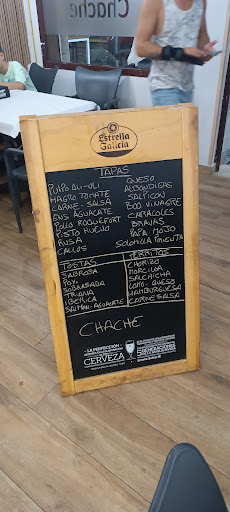 Chache
Estrella
Galicia
TAPAS
PULPO ALI-OLI
MAGRO TOMATE
CARNE-SALSA
ENS AGUACATE
POLLO ROQUEFORT
PISTO HUEVO
RUSA
CALLOS
QUESO
ALBONDIGAS
SALPICON
BOQ VINAGRE
CARACOLES
BRAVAS
PAPA MOJO
SOLOMILLO PIMIENTA
TOSTAS
SABROSA
SOBRASADA
TRIANA
IBERICA
SALMON-AGUACATE
PERRITOS
CHORIZO
MORCILLA
SALCHICHA
LOMO-QUESO
HAMBURGUESA
CARNE SALSA
CHACHE
LA PERFECCIÓN
CERVEZA
5 GENERACIONES